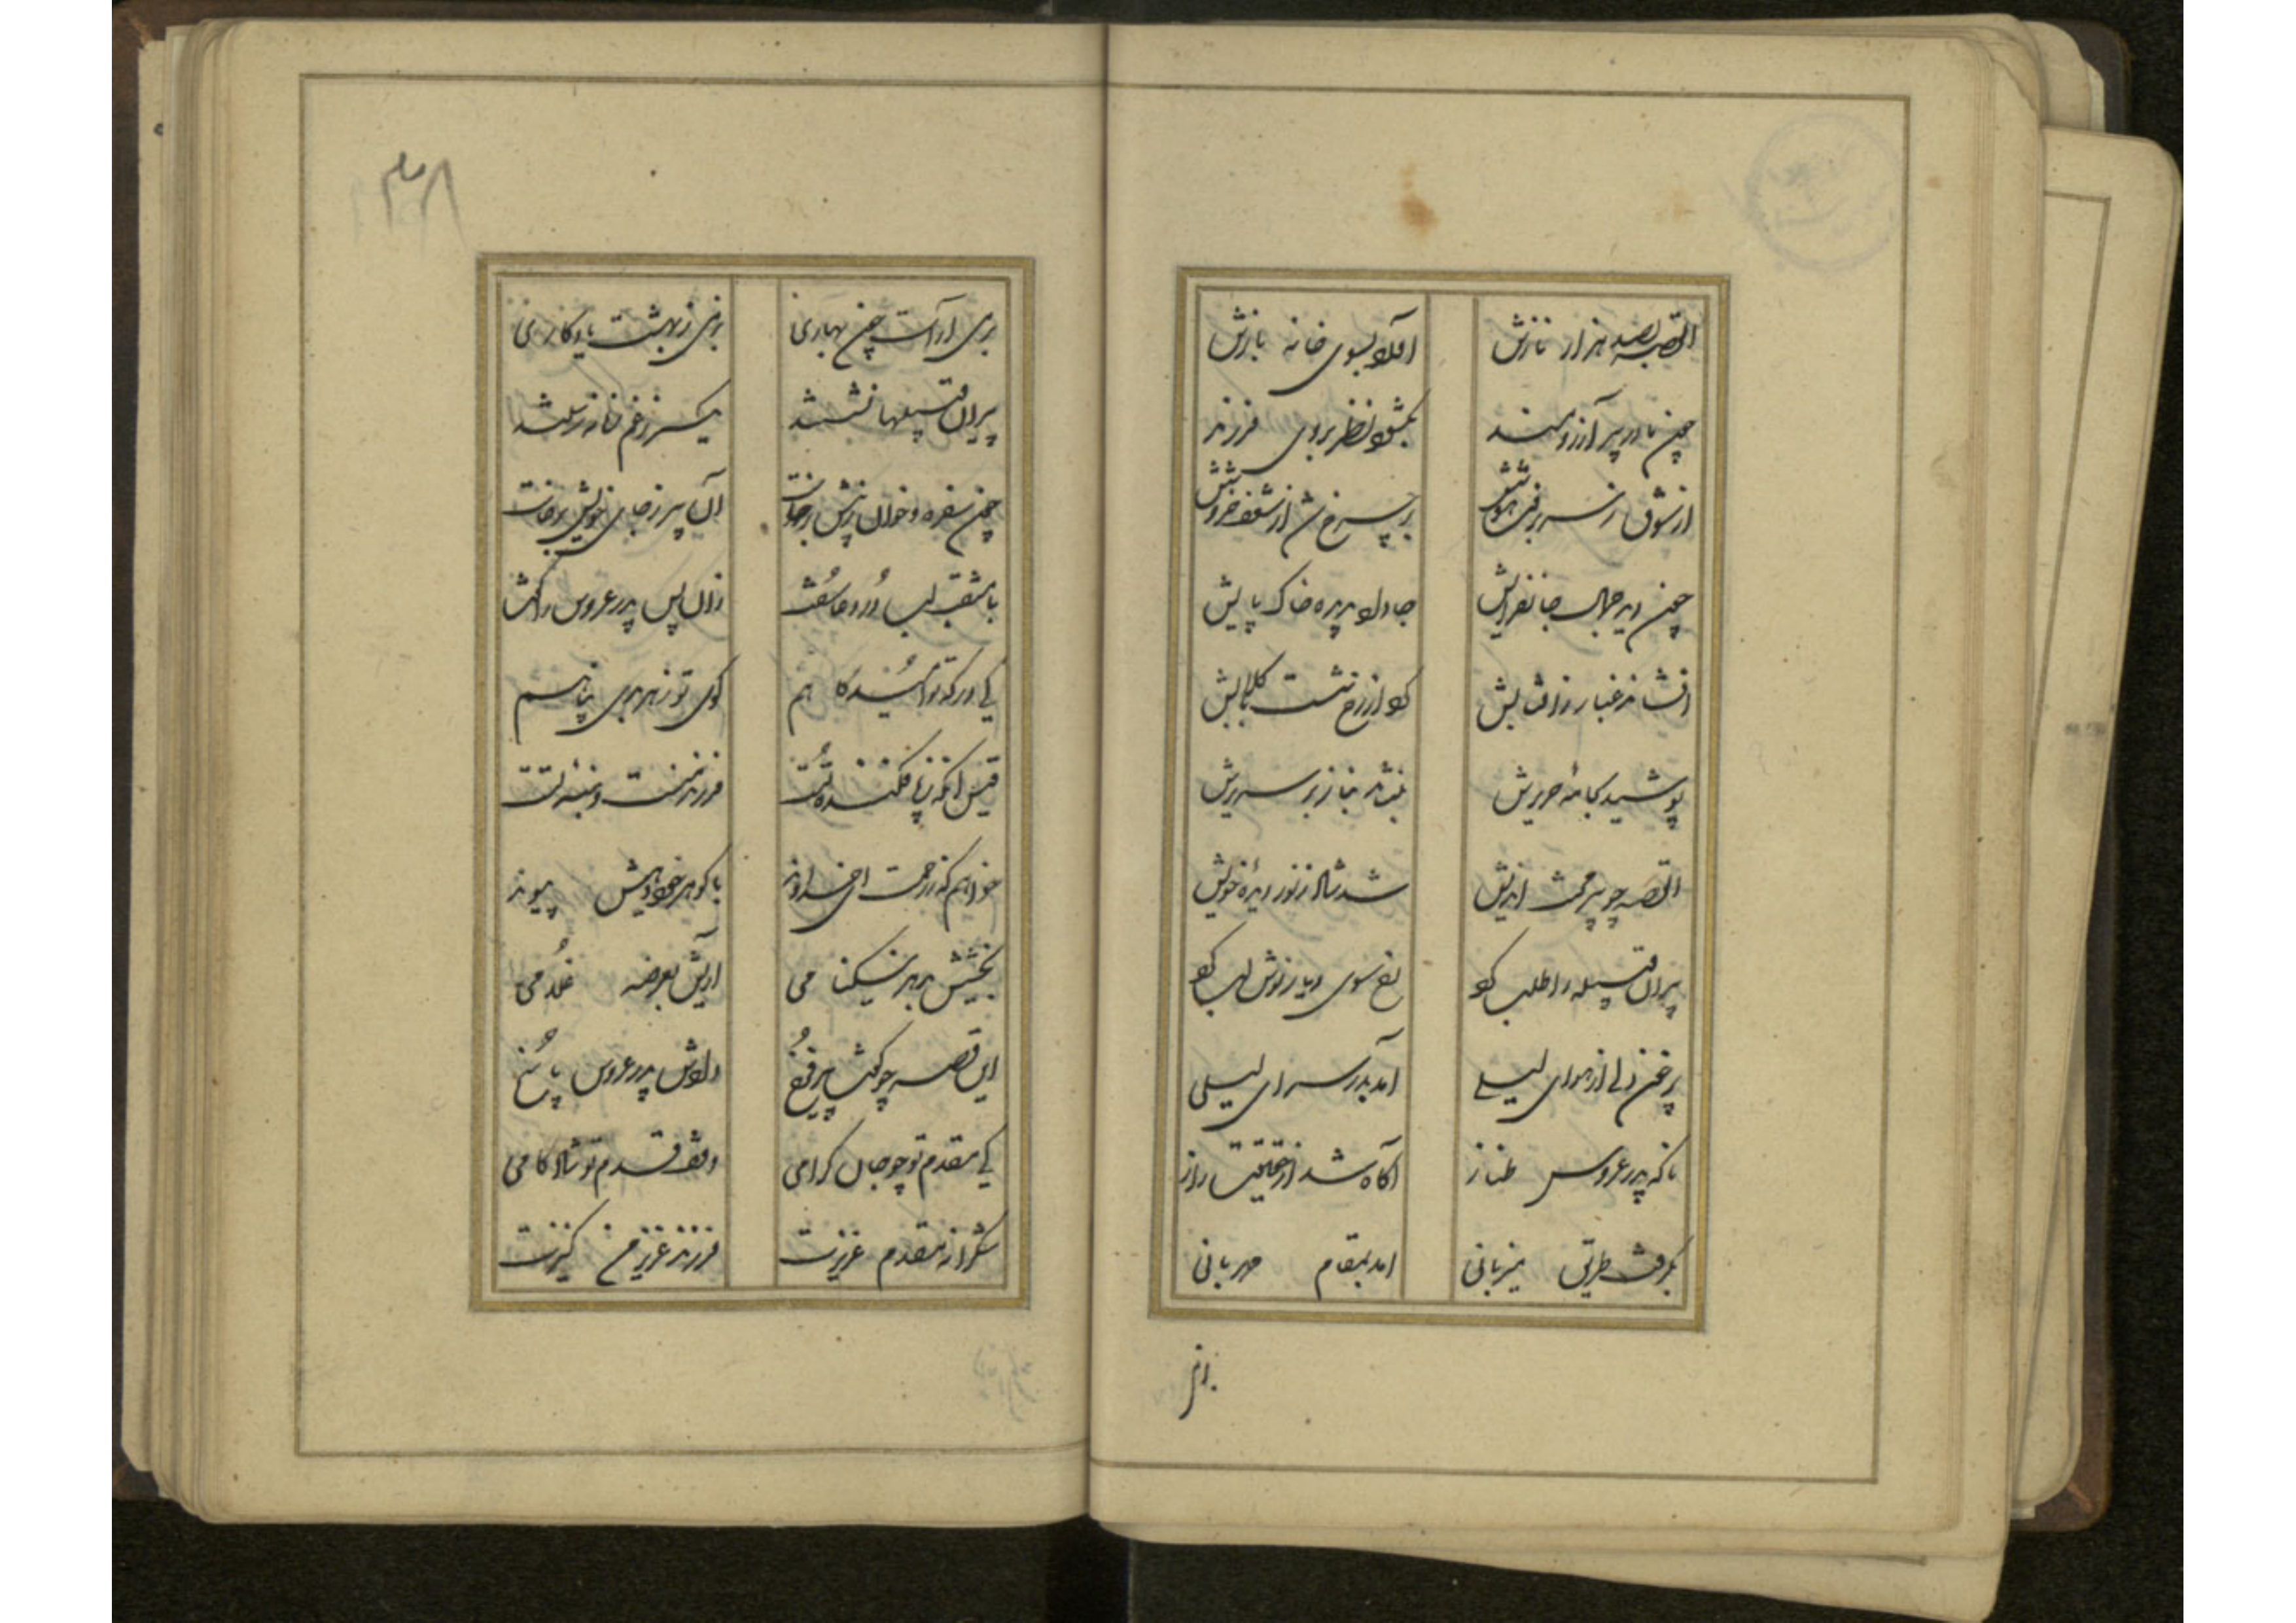 القصه بصد هزار نازش آورد بسوی خانه بازش
چون مادر پیر آرزومند بگشود نظر بروی فرزند
از شوق ز سر برفت هوشش بر چرخ شد از شعف خروشش
چون دید جمال جانفزایش جا داد بدیده خاک پایش
افشاند غبار از قبایش کرد از رخ شست
پوشید بجامهٔ حریرش بنشاند بناز بر سریرش
القصه چو پیر محنت اندیش شد شاد ز نور دیدهٔ خویش
پیران قبیله را طلب کرد رخ سوی دیار نوش لب کرد
پر خون دلی از هوای لیلی آمد بدر سرای لیلی
ناگه پدر عروس طناز آگاه شد از حقیقت راز
بگرفت طریق میزبانی آمد بمقام مهربانی
بزمی
بزمی آراست چون بهاری بزمی ز بهشت یادگاری
پیران قبیلها نشستند یکسر ز غم زمانه رستند
چون سفره و خوان ز پیش برخاست آن پیر ز جای خویش برخاست
با مثقب لب در دعا سفت زان پس پدر عروس را گفت
کی درگه تو امیدگاهم کوی تو ز هر بدی پناهم
قیس آنکه ز پا فکندهٔ تست فرزند منست و بندهٔ تست
خواهم که ز رحمت ای خداوند با گوهر خود دهیش پیوند
بخشیش بهر نیکنامی آریش بعرضه غلامی
این قصه چو گفت پیر فرخ دادش پدر عروس پاسخ
کی مقدم تو چو جان گرامی وقف قدم تو شادکامی
شکرانه مقدم عزیزت فرزند عزیز من کنیزت